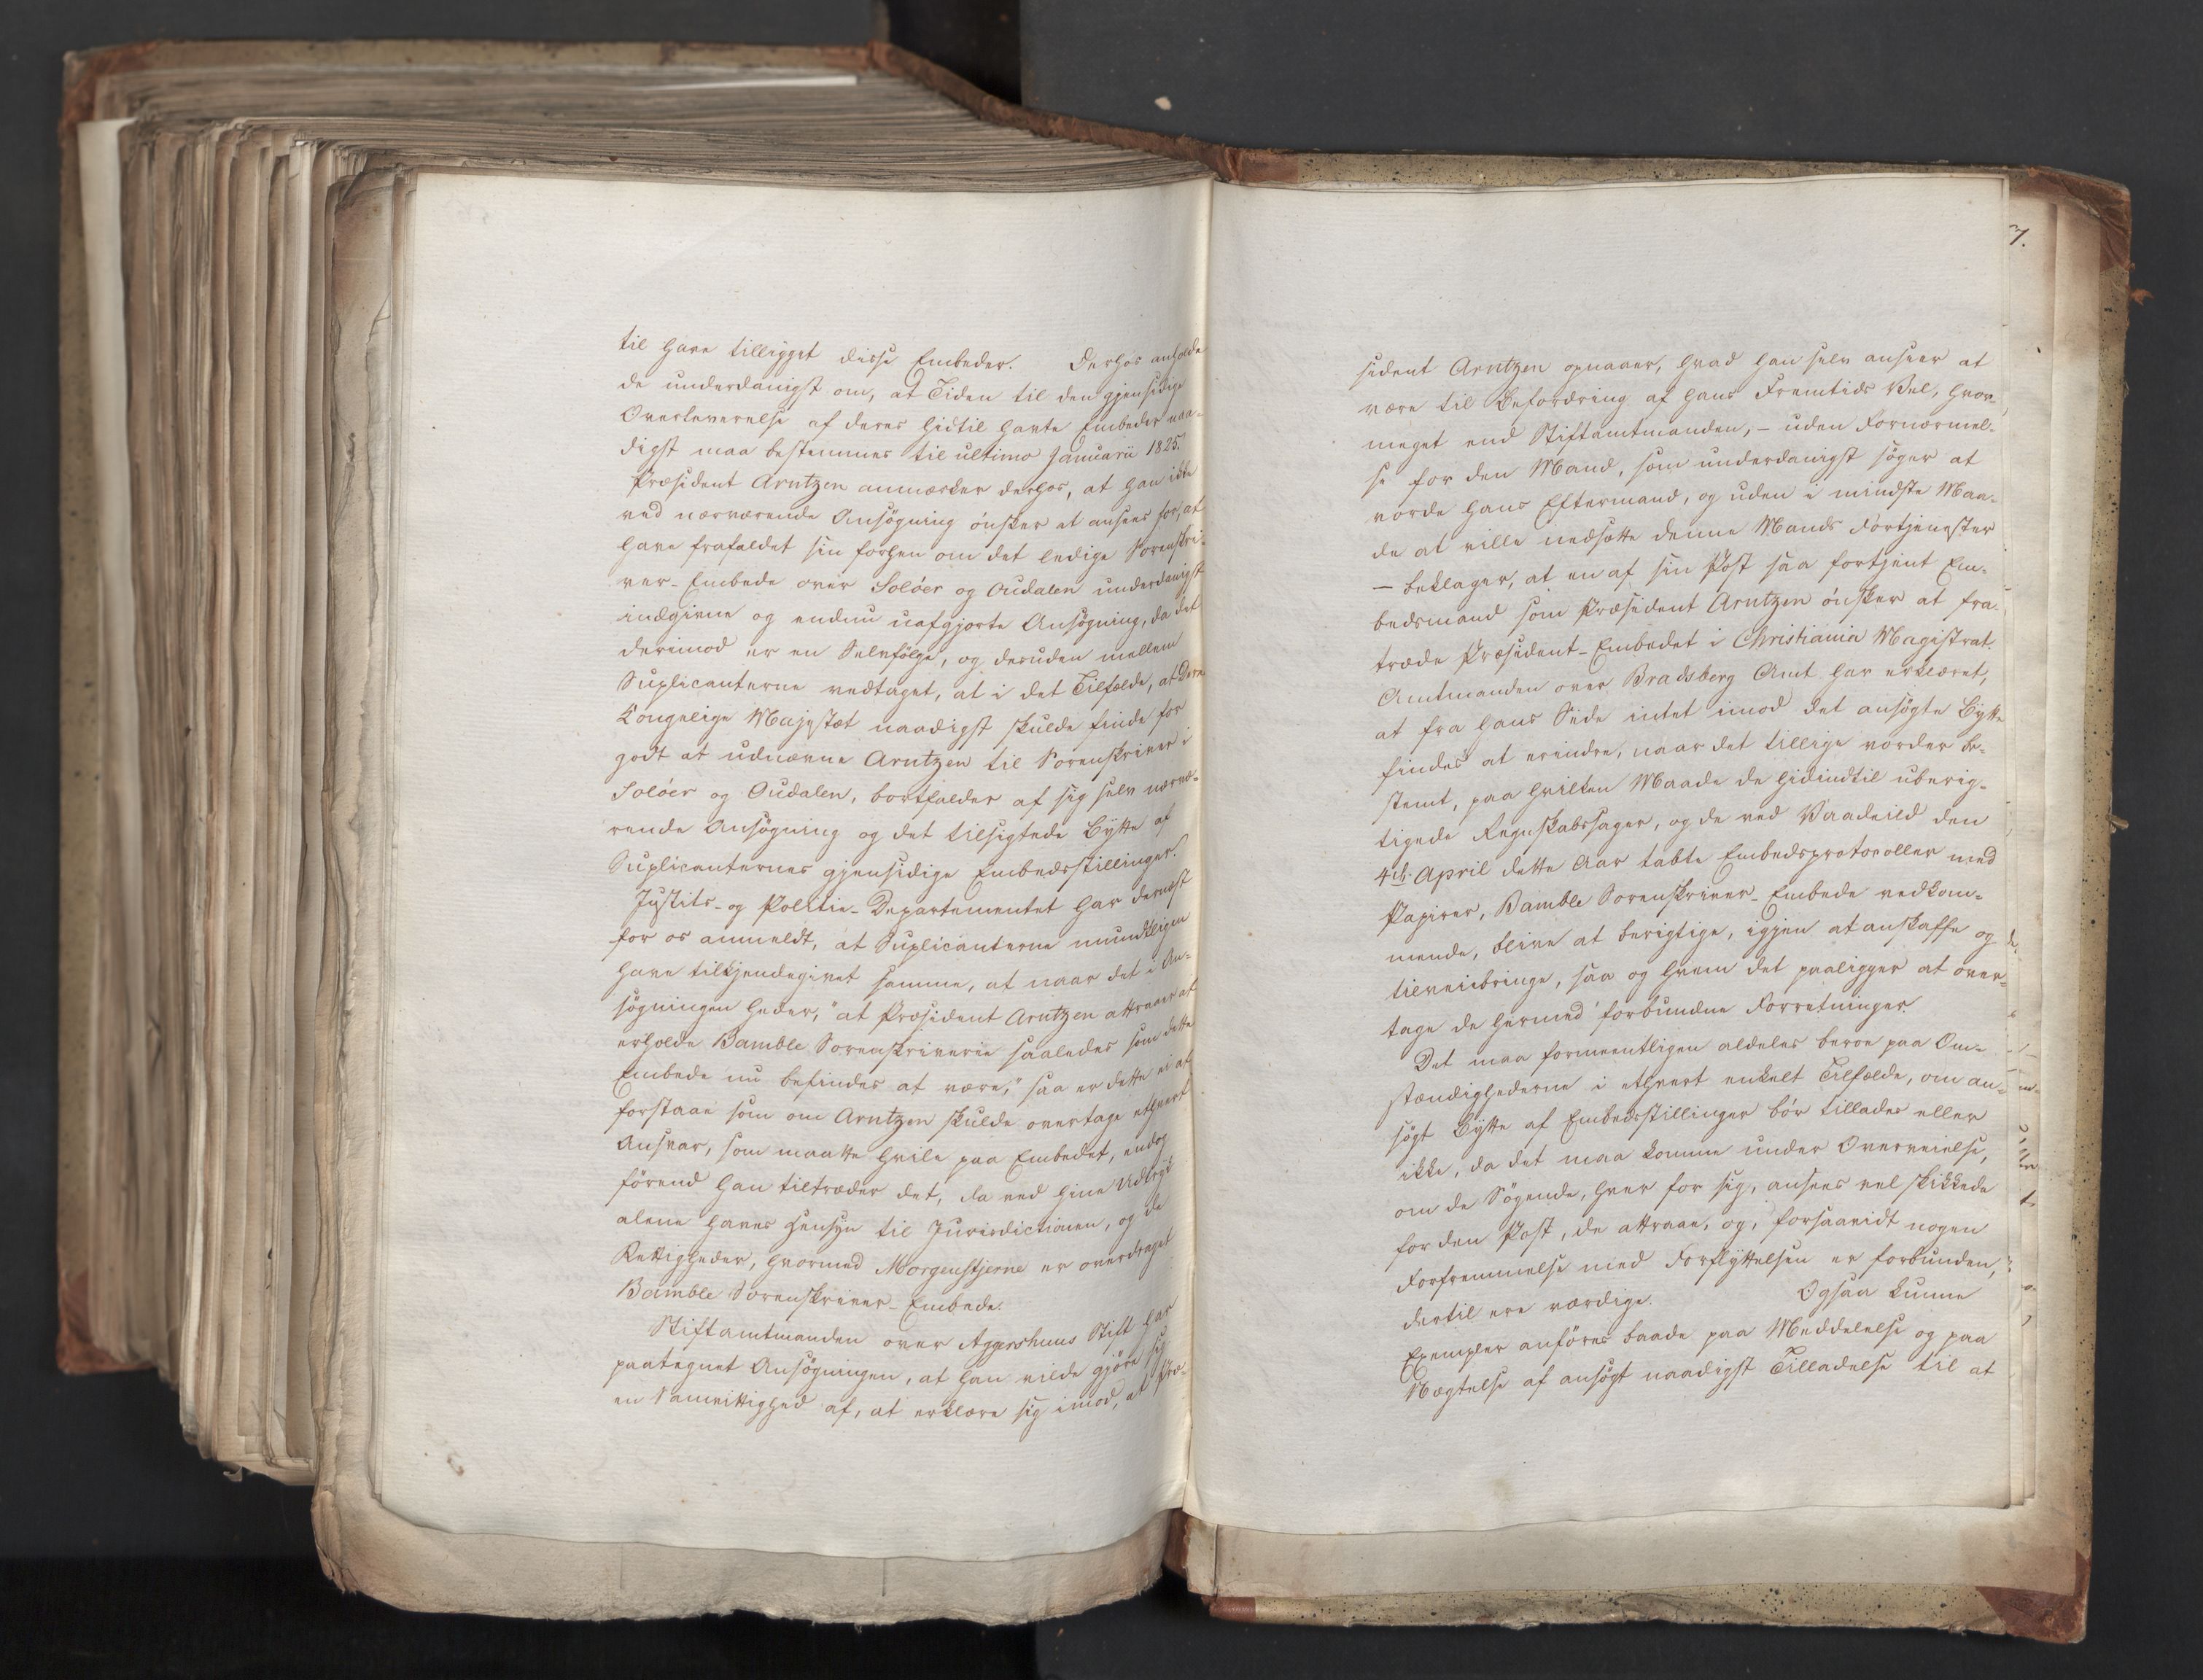 til have tilligget disse Embeder. Derhos anholde
de underdanigst om, at Tiden til den gjensidige
Overleverelse af deres hidtil havte Embeder naa-
digst maa bestemmes til ultimo Januarii 1825.
Præsident Arntzen anmærker derhos, at han ikke
ved nærværende Ansøgning ønsker at ansees for, at
have frafaldet sin forhen om det ledige Sorenskri-
ver-Embede over Soløer og Oudalen underdanigst
indgivne og endnu uafgjorte Ansøgning, da det
derimod er en Selvfølge, og desuden mellem
Suplicanterne vedtaget, at i det Tilfælde, at Deres
Kongelige Majestæt naadigst skulde finde for
godt at udnævne Arntzen til Sorenskriver i
Soløer og Oudalen, bortfalder af sig selv nærvæ-
rende Ansøgning og det tilsigtede Bytte af
Suplicanternes gjensidige Embedsstillinger.
Justits- og Politie-Departementet har dernæst
for os anmeldt, at Suplicanterne mundtligen
have tilkjendegivet samme, at naar det i An-
søgningen heder, "at Præsident Arntzen attraaer at
erholde Bamble Sorenskriverie saaledes som dette
Embede nu befindes at være," saa er dette ei at
forstaae som om Arntzen skulde overtage ethvert
Ansvar, som maatte hvile paa Embedet, endog
førend han tiltræder det, da ved hine Udtryk
alene haves Hensyn til Jurisdictionen, og de
Rettigheder, hvormed Morgenstjerne er overdraget
Bamble Sorenskriver-Embede.
Stiftamtmanden over Aggershuus Stift har
paategnet Ansøgningen, at han vilde gjøre sig
en Samvittighed af, at erklære sig imod, at Præ-
7.
sident Arntzen opnaaer, hvad han selv anseer at
være til Befordring af hans Fremtids Vel, hvor-
meget end Stiftamtmanden, - uden Fornærmel-
se for den Mand, som underdanigst søger at
vorde hans Eftermand, og uden i mindste Maa-
de at ville nedsætte denne Mands Fortjenester
- beklager, at en af sin Post saa fortjent Em-
bedsmand som Præsident Arntzen ønsker at fra-
træde Præsident-Embedet i Christiania Magistrat.
Amtmanden over Bradsberg Amt har erklæret,
at fra hans Side intet imod det ansøgte Bytte
findes at erindre, naar det tillige vorder be-
stemt, paa hvilken Maade de hidindtil uberig-
tigede Regnskabssager, og de ved Vaadeild den
4de April dette Aar tabte Embedsprotocoller med
Papirer, Bamble Sorenskriver-Embede vedkom-
mende, blive at berigtige, igjen at anskaffe og
tilveiebringe, saa og hvem det paaligger at over-
tage de hermed forbundne Forretninger.
Det maa formeentligen aldeles beroe paa Om-
stændighederne i ethvert enkelt Tilfælde, om an-
søgt Bytte af Embedsstillinger bør tillades eller
ikke, da det maa komme under Overveielse,
om de Søgende, hver for sig, ansees vel skikkede
for den Post, de attraae, og, forsaavidt nogen
Forfremmelse med Forflyttelsen er forbunden,
dertil ere værdige. Ogsaa kunne
Exempler anføres baade paa Meddelelse og paa
Nægtelse af ansøgt naadigst Tilladelse til at